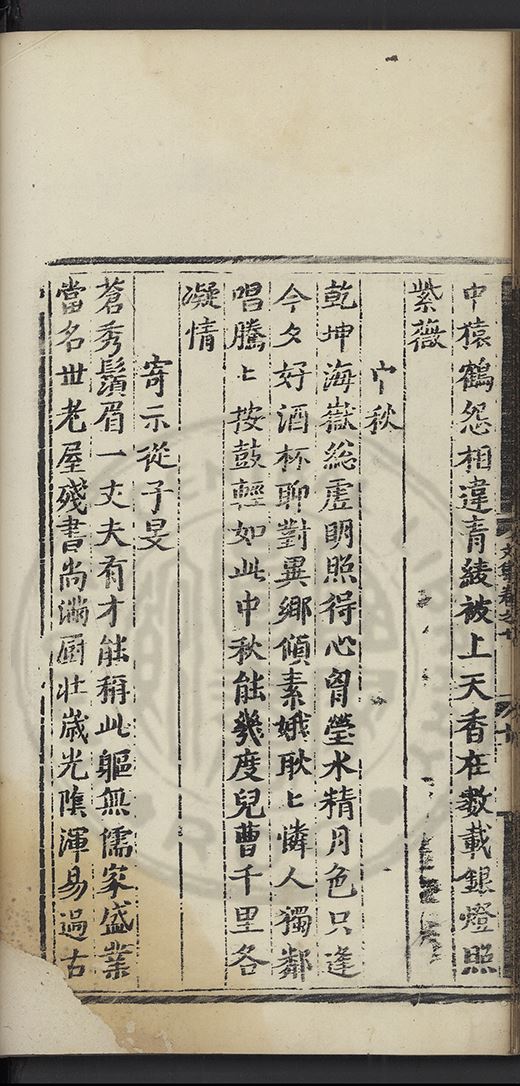 中猿鶴怨相違青綾被上天香在數載銀燈照
紫薇
中秋
乾坤海嶽總虛明照得心胷瑩水精月色只逢
今夕好酒杯聊對異鄉傾素娥耿〻憐人獨鄰
唱騰〻按鼓輕如此中秋能幾度兒曹千里各
凝情
寄示從子旻
蒼秀鬚眉一丈夫有才能稱此軀無儒家盛業
當名世老屋殘書尚滿厨壯歲光陰渾易過古
文集卷之十